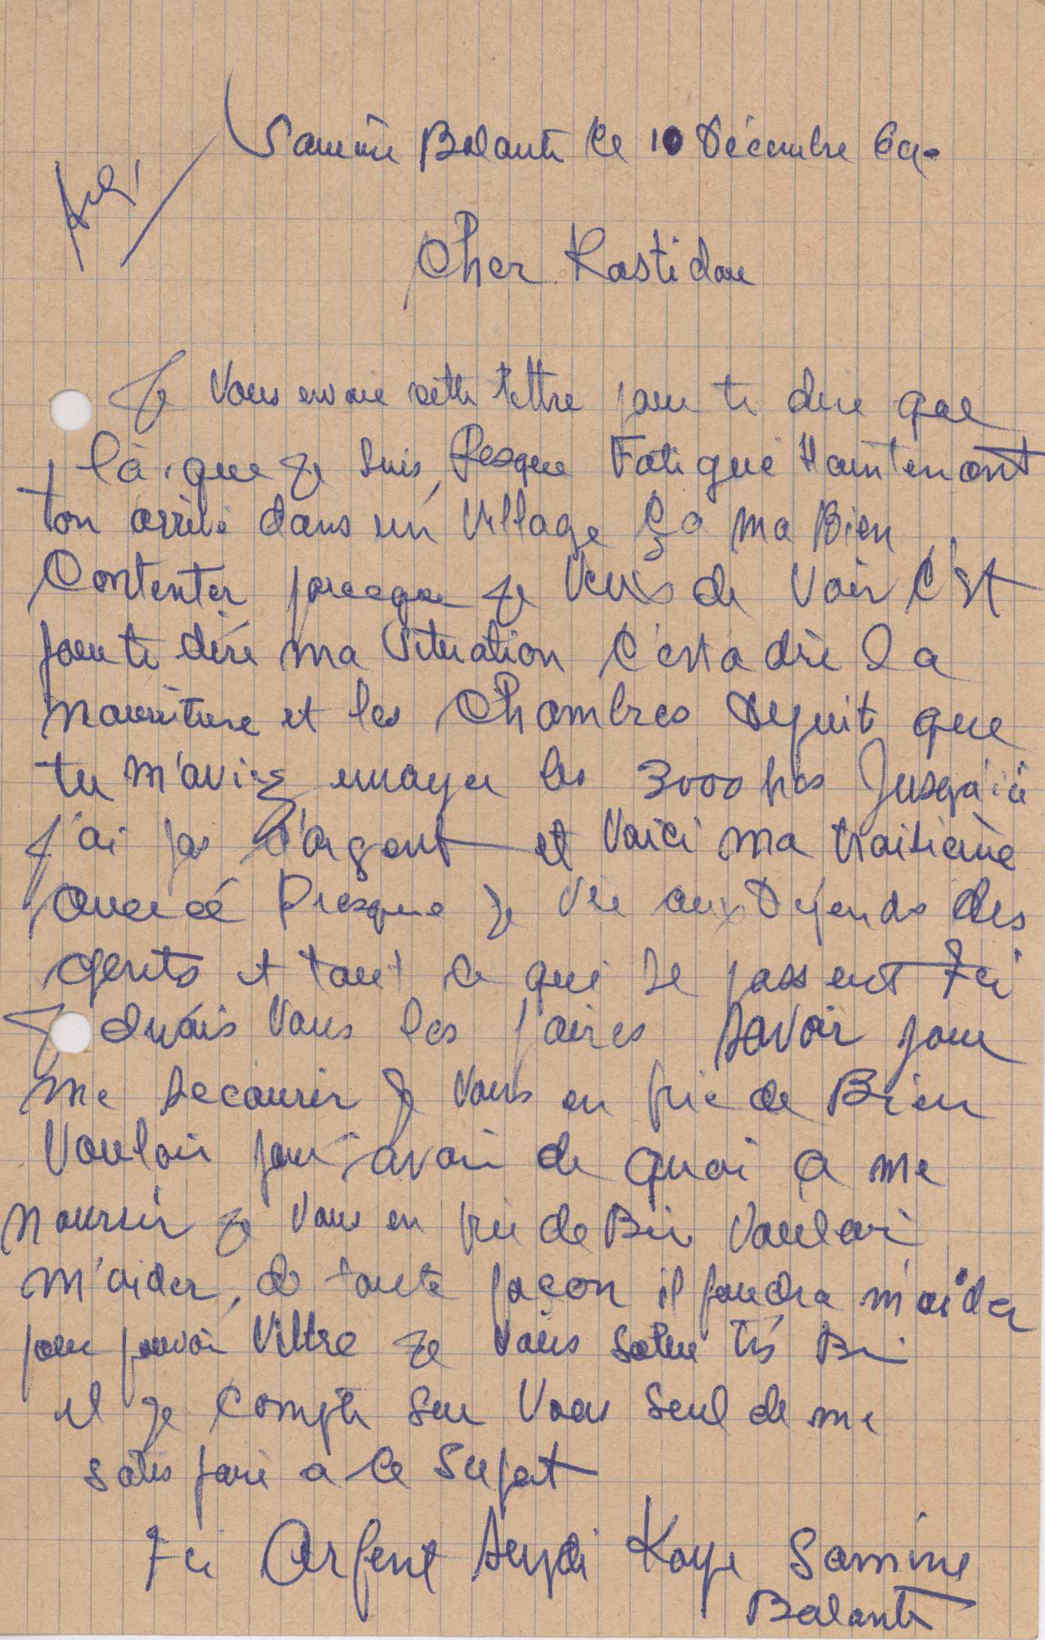 Samine Balante le 10 Décembre 69-
Cher Kastidou
Je vous envoie cette lettre pour te dire que
là, que je suis, Presque Fatigué Maintenant
ton arrivé dans un Village Ça ma Bien
Contenter parceque je viens de Voir C'est
pour te dire ma Situation C'est a dire la
nourriture et les Chambres Depuit que
tu m'avi envoyer les 3000 frs Jusqu'ici
j'ai pas d'argent et Voici ma troisième
Presque je Vie aux Dépends des
gents et tout ce qui se passent Ici
Je duvais Vous les faires Savoir pour
me Secourir Je Vous en prie de Bien
Vouloir pour avoir de quoi a me
Nourrir je Vous en prie de Bien Vouloir
m'aider, de toute façon il faudra m'aider
pour pouvoir Vivre je Vous Salue très Bien
et je Compte Sur Vous Seul de me
Satisfaire a ce Sujet
Ici Arfent Seydi Kaye Samine
Balante